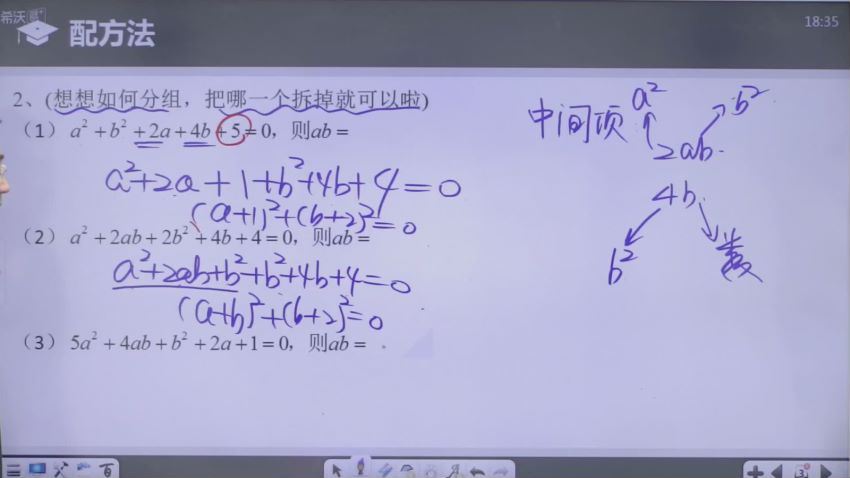 希沃
18:35
配方法
2、(想想如何分组，把哪一个拆掉就可以啦)
（1）a²+b²+2a+4b+5=0，则ab=
a²+2a+1+b²+4b+4=0
(a+1)²+(b+2)²=0
（2）a²+2ab+2b²+4b+4=0，则ab=
a²+2ab+b²+b²+4b+4=0
(a+b)²+(b+2)²=0
（3）5a²+4ab+b²+2a+1=0，则ab=
a² b²
中间项
2ab
4b
b² 数
3